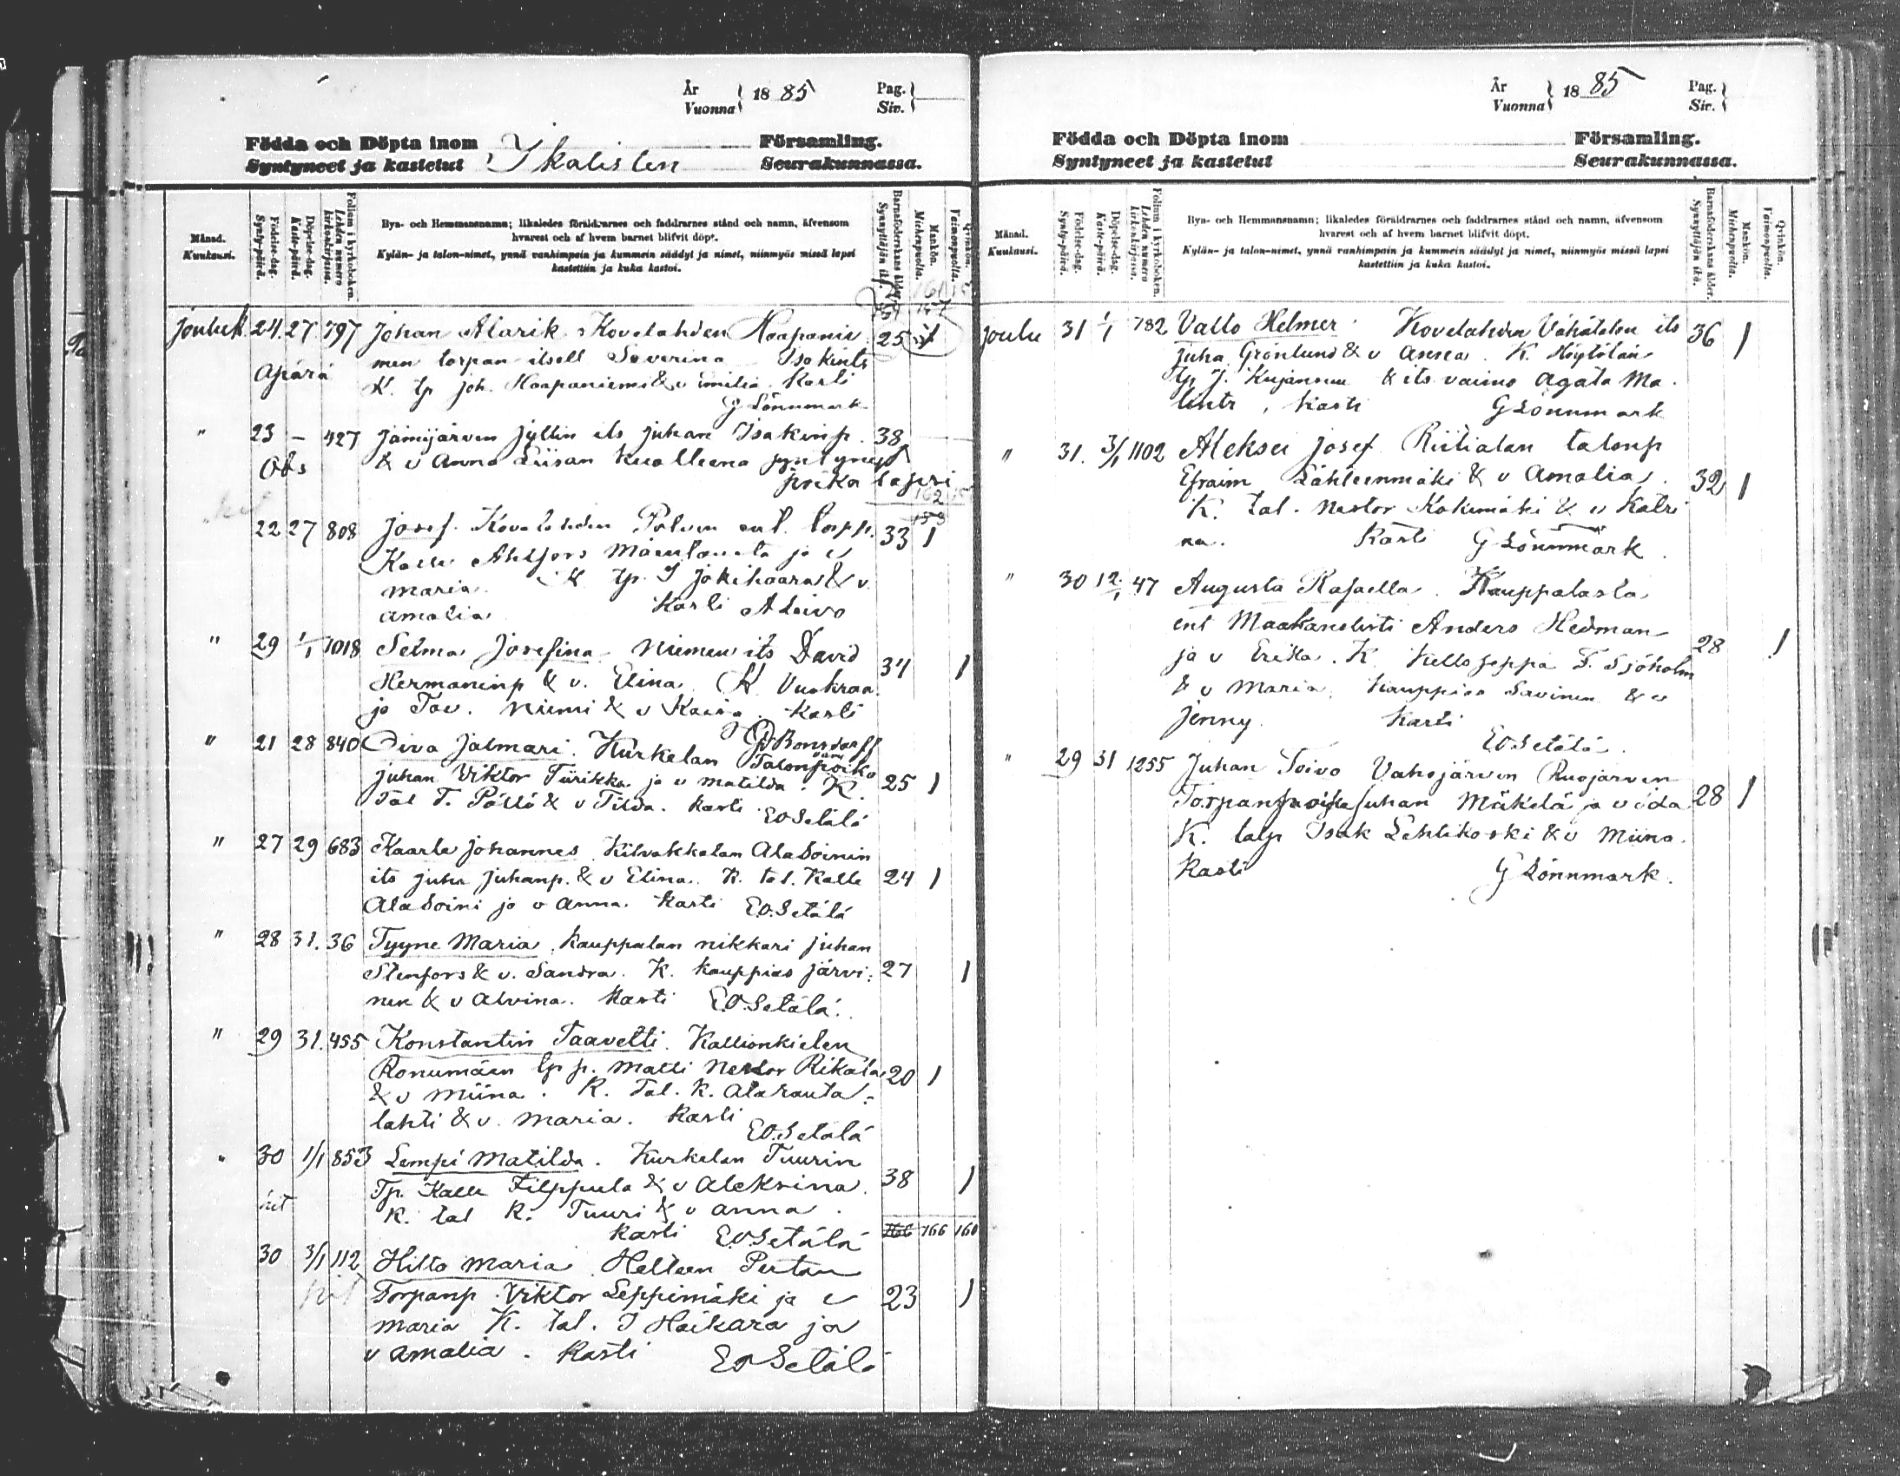 År Vuonna 1885 Pag. Siv.
Födda och Döpta inom Ikalisten Församling.
Syntyneet ja kastetut Seurakunnassa.
Månad. Kuukausi.
Födelse-dag. Synty-päivä.
Döpelse-dag. Kaste-päivä.
Folium i kyrkoboken. Lehden numero kirkonkirjassa.
Bya- och Hemmansnamn; likaledes föräldrarnes och faddrarnes stånd och namn, äfvensom
hvarest och af hvem barnet blifvit döpt.
Kylän- ja talon-nimet, ynnä vanhimpain ja kummein säädyt ja nimet, niinmyös missä lapsi
kastettiin ja kuka kastoi.
Barnaföderskans ålder. Synnyttäjän ikä.
Mankön. Miehenpuolta.
Qvinkön. Vaimonpuolta.
Jouluk. 24. 27. 797 Johan Alarik Kovelahden Haapanie 25
men torpan itsell Severina Isokints
Äpärä K. tp Joh. Haapaniemi & v Emilia. Kasti
G Lönnmark
" 23 – 427 Jämijärven Jyllin its Juhan Isakinp. 38
Obs & v Anna Liisan kuolleena syntynyt
poika lapsi
22 27 808 Josef. Kovelahden torpp. 33 1
Kalle Ahlfors ja v
Maria. K tp. J Jokihaara & v.
Amalia Kasti A Leivo
" 29 1/1 1018 Selma Josefina Niemen its David 34 1
Hermaninp & v. Elina. K
ja Niemi & v Kaisa. Kasti
Bonsdorff
" 21 28 840 Oiva Jalmari. Kurkelan Talonpoika
Juhan Viktor Tiirikka ja v Matilda. K. 25 1
Tal T. Pöllö & v Tilda. Kasti EO Setälä
" 27 29 683 Kaarle Johannes Kilvakkalan AlaSoinin
its Juha Juhanp. & v Elina. K. tal. Kalle 24 1
AlaSoini ja v Anna. Kasti E.O. Setälä
" 28 31. 36 Tyyne Maria. Kauppalan nikkari Juhan
Stenfors & v. Sandra. K. kauppias Järvi- 27 1
nen & v Alvina. Kasti E.O. Setälä.
" 29 31. 455 Konstantin Taavetti. Kallionkielen
Ronumäen tp p. Matti Nestor Rikala 20 1
& v Miina. K. Tal. K. Alarauta-
lahti & v. Maria. Kasti EO. Setälä
" 30 1/1 853 Lempi Matilda. Kurkelan Tuurin
Tp. Kalle Filppula & v Aleksina. 38 1
K. tal K. Tuuri & v Anna.
Kasti E.O Setälä 166 160
30 3/1 112 Hilto Maria. Helteen Pertan
Torpanp. Viktor Leppimäki ja v 23 1
Maria K. tal. J Haikara ja
v Amalia. Kasti EO Setälä
År Vuonna 1885 Pag. Siv.
Födda och Döpta inom Församling.
Syntyneet ja kastetut Seurakunnassa.
Månad. Kuukausi.
Födelse-dag. Synty-päivä.
Döpelse-dag. Kaste-päivä.
Folium i kyrkoboken. Lehden numero kirkonkirjassa.
Bya- och Hemmansnamn; likaledes föräldrarnes och faddrarnes stånd och namn, äfvensom
hvarest och af hvem barnet blifvit döpt.
Kylän- ja talon-nimet, ynnä vanhimpain ja kummein säädyt ja nimet, niinmyös missä lapsi
kastettiin ja kuka kastoi.
Barnaföderskans ålder. Synnyttäjän ikä.
Mankön. Miehenpuolta.
Qvinkön. Vaimonpuolta.
Joulu 31 1/1 782 Valto Helmer. Kovelahden Vähätalon its 36 1
Juha Grönlund & v Anna. K. Höytölän
tp J. Kujansuu & its vaimo Agata Ma-
Kasti G Lönnmark
" 31. 3/1 1102 Aleksei Josef Riitialan talonp
Efraim Lähteenmäki & v Amalia. 32 1
K. tal. Nestor Kokemäki & v Katri
na. Kasti G Lönnmark.
" 30 12/1 47 Augusta Rafaella. Kauppalasta
ent Maakanslisti Anders Hedman 28 1
ja v Erika. K Kelloseppä F. Sjöholm
& v Maria. Kauppias Savinen & v
Jenny. Kasti
EO Setälä.
" 29 31 1255 Juhan Toivo Vahojärven Ruojärven
Torpanpoika Juhan Mäkelä ja v Ida 28 1
K. talp Isak Lehtikoski & v Miina.
Kasti G Lönnmark.